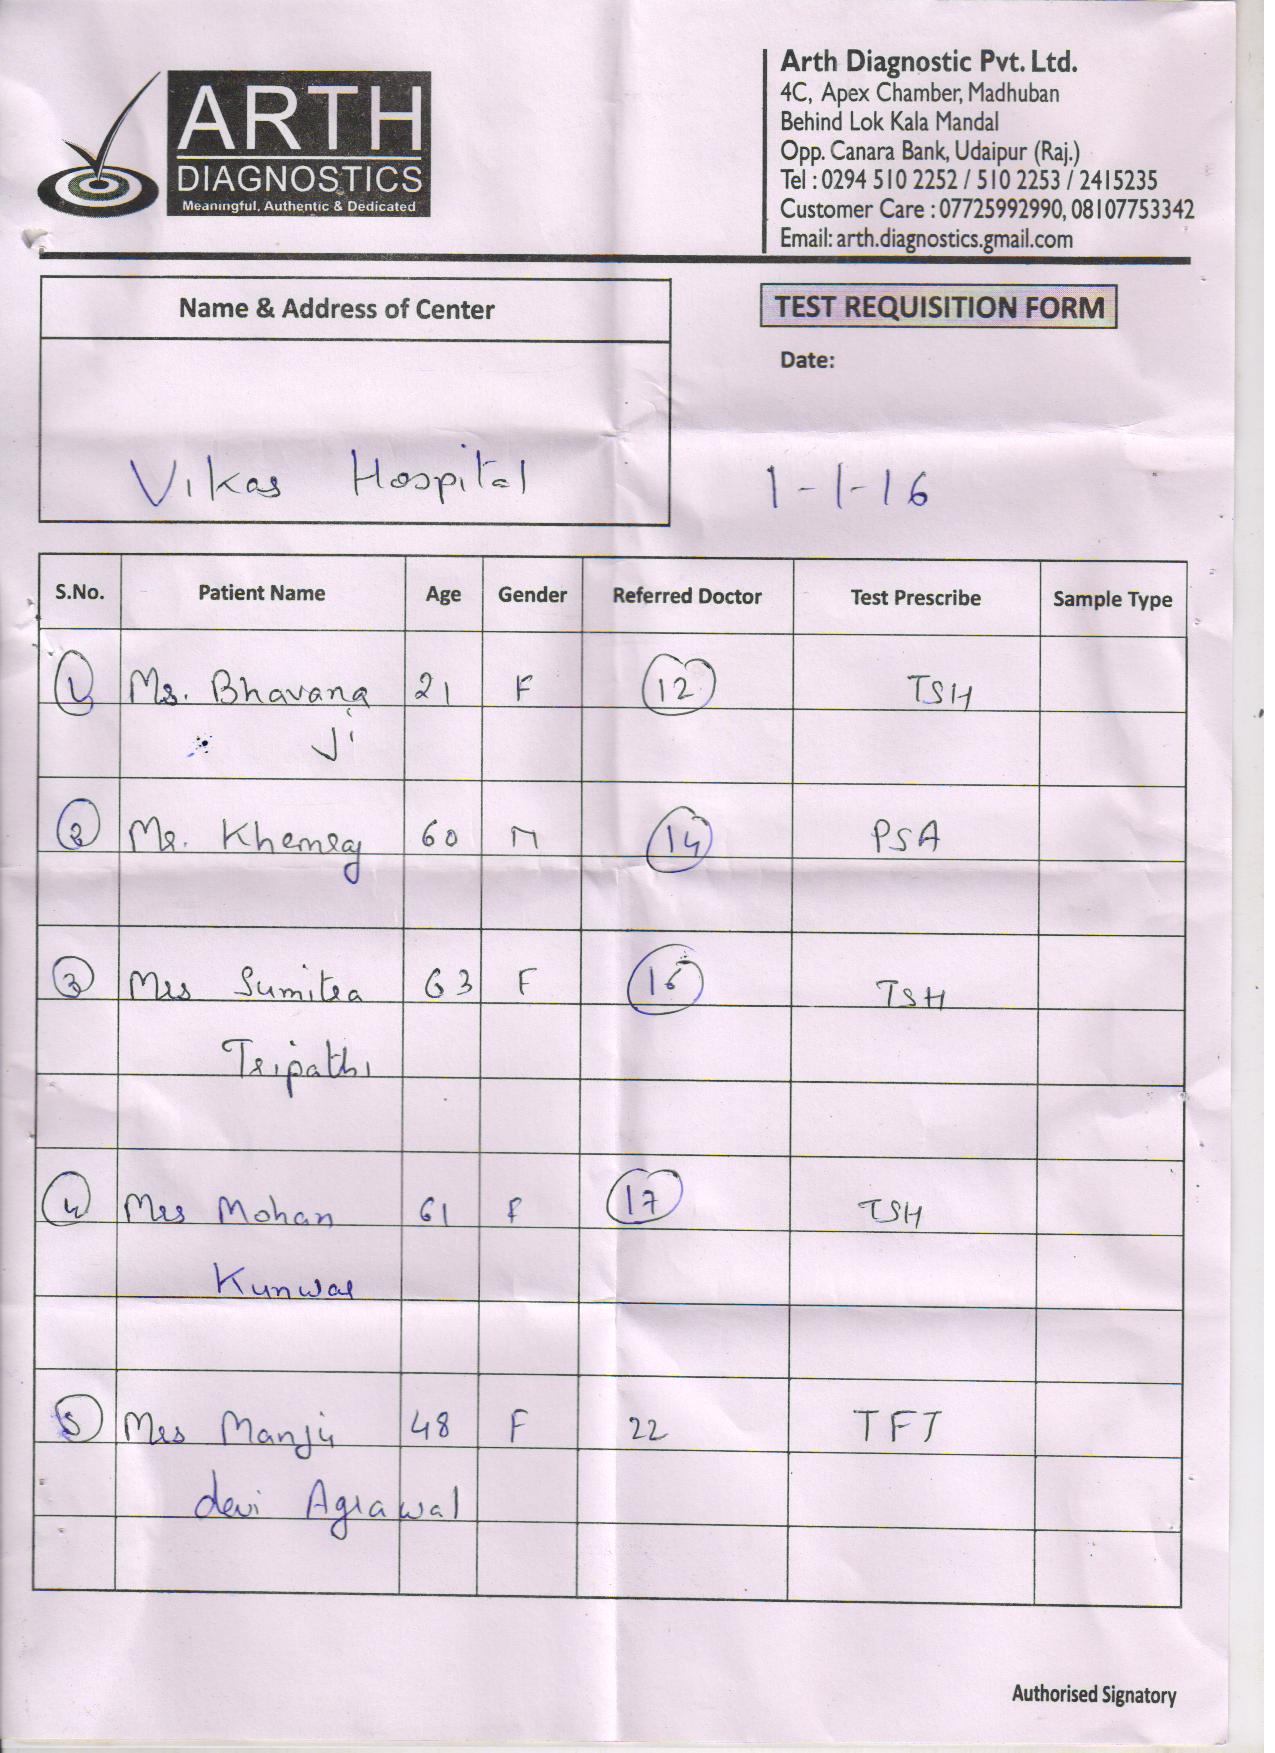 ARTH
DIAGNOSTICS
Meaningful, Authentic & Dedicated
Arth Diagnostic Pvt. Ltd.
4C, Apex Chamber, Madhuban
Behind Lok Kala Mandal
Opp. Canara Bank, Udaipur (Raj.)
Tel : 0294 510 2252 / 510 2253 / 2415235
Customer Care : 07725992990, 08107753342
Email: arth.diagnostics.gmail.com
Name & Address of Center
TEST REQUISITION FORM
Date:
Vikas Hospital
1-1-16
S.No. Patient Name Age Gender Referred Doctor Test Prescribe Sample Type
1 Ms. Bhavana 21 F 12 TSH
Ji
2 Mr. Khemraj 60 M 14 PSA
3 Mrs Sumitra 63 F 16 TSH
Tripathi
4 Mrs Mohan 61 F 17 TSH
Kunwar
5 Mrs Manju 48 F 22 TFT
devi Agrawal
Authorised Signatory